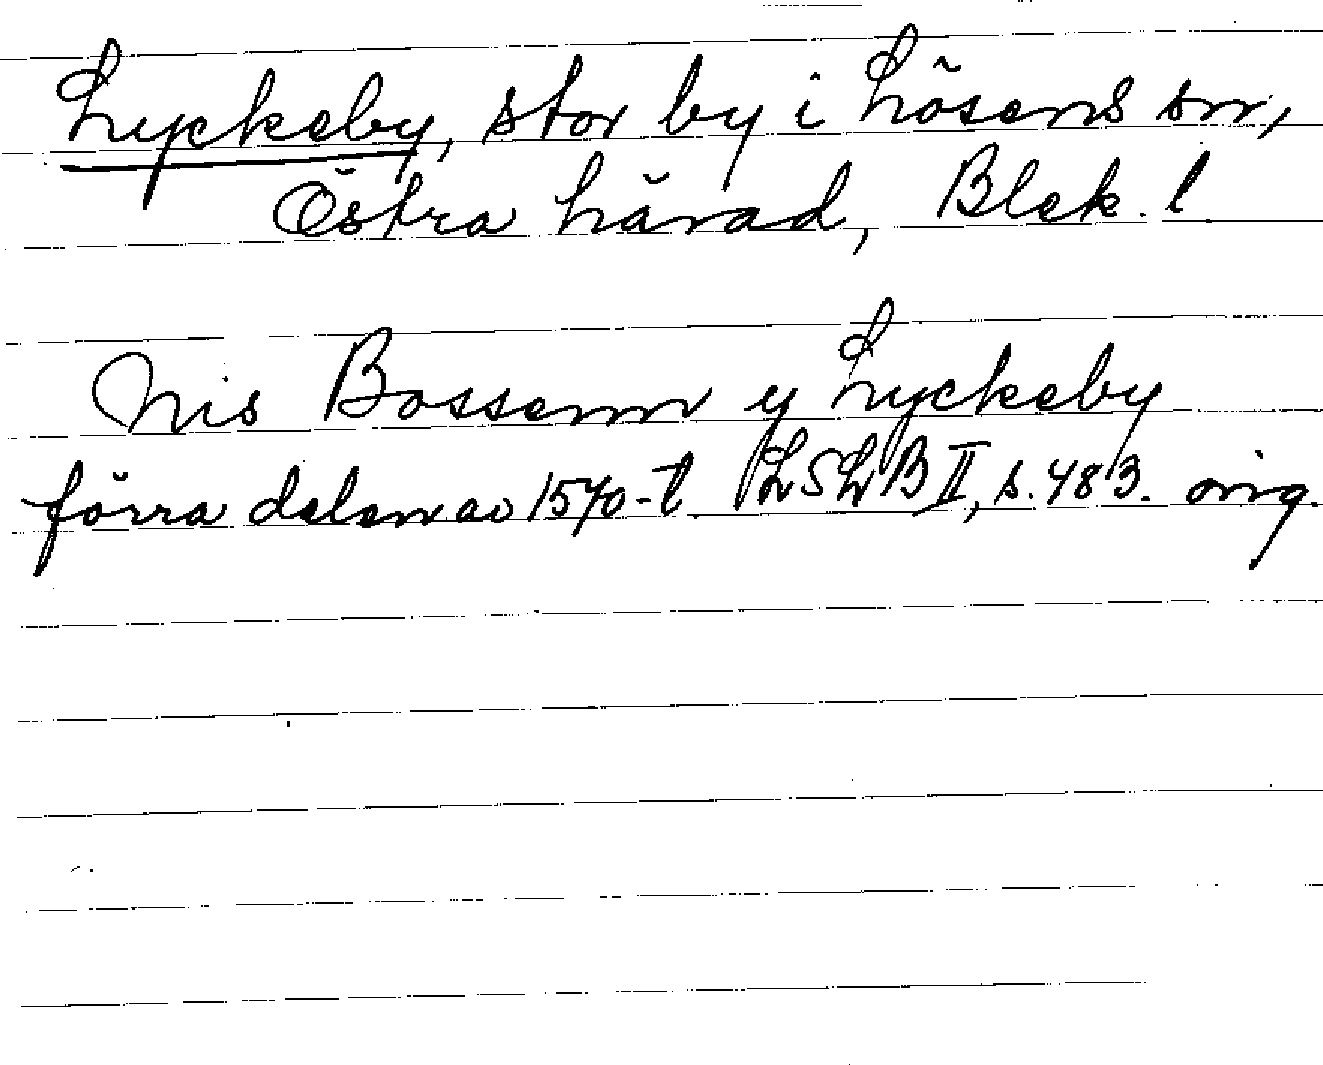 Lyckeby, stor by i Lösens sn,
Östra härad, Blek. l
Nis Bossenn y Lyckeby
förra delen av 1570-t LSLB II, s. 483. orig.